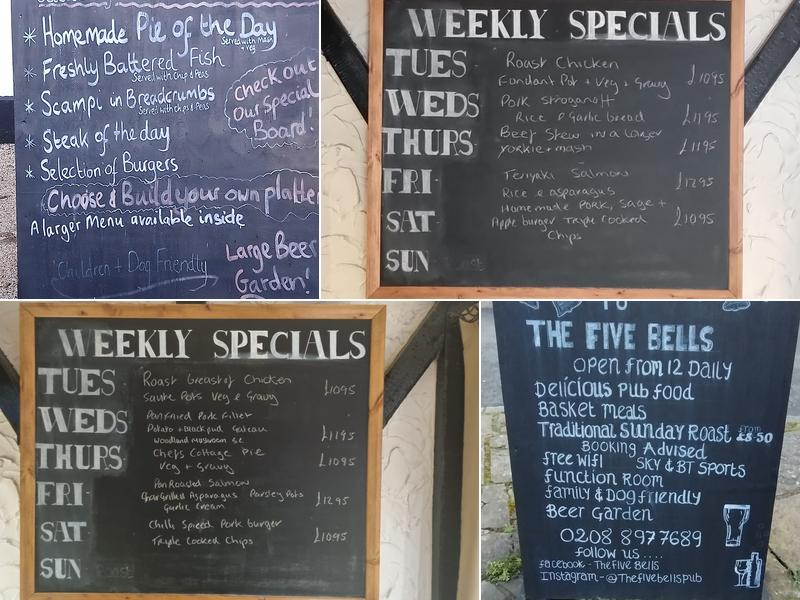 * Homemade Pie of the Day
Served with Mash + veg
* Freshly Battered Fish
Served with Chips & Peas
* Scampi in Breadcrumbs
Served with chips & Peas
* Steak of the day
* Selection of Burgers
Check out
Our Special
Board!
Choose & Build your own platter
A larger Menu available inside
Children + Dog Friendly
Large Beer
Garden!
WEEKLY SPECIALS
TUES Roast Chicken
Fondant Pot + Veg + Gravy £1095
WEDS Pork Stroganoff
Rice & Garlic bread £1195
THURS Beef Stew in a Larger
Yorkie + mash £1195
FRI Teriyaki Salmon
Rice & asparagus £1295
SAT Homemade Pork, Sage +
Apple burger Triple Cooked £1095
Chips
SUN
WEEKLY SPECIALS
TUES Roast breast of Chicken
Saute Pots Veg & Gravy £1095
WEDS Pan Fried Pork Fillet
Potato + Black pud Gateau £1195
Woodland Mushroom
THURS Chefs Cottage Pie £1095
Veg + Gravy
FRI Pan Roasted Salmon
Chargrilled Asparagus Parsley Pots £1295
Garlic Cream
SAT Chilli Spiced Pork burger
Triple Cooked Chips £1095
SUN Roast
TO
THE FIVE BELLS
OPEN from 12 DAILY
Delicious Pub food
Basket meals
Traditional Sunday Roast from £8.50
Booking Advised
free wifi SKY & BT Sports
function Room
family & Dog friendly
Beer Garden
0208 8977689
follow us ....
facebook - The five Bells
Instagram - @Thefivebellspub